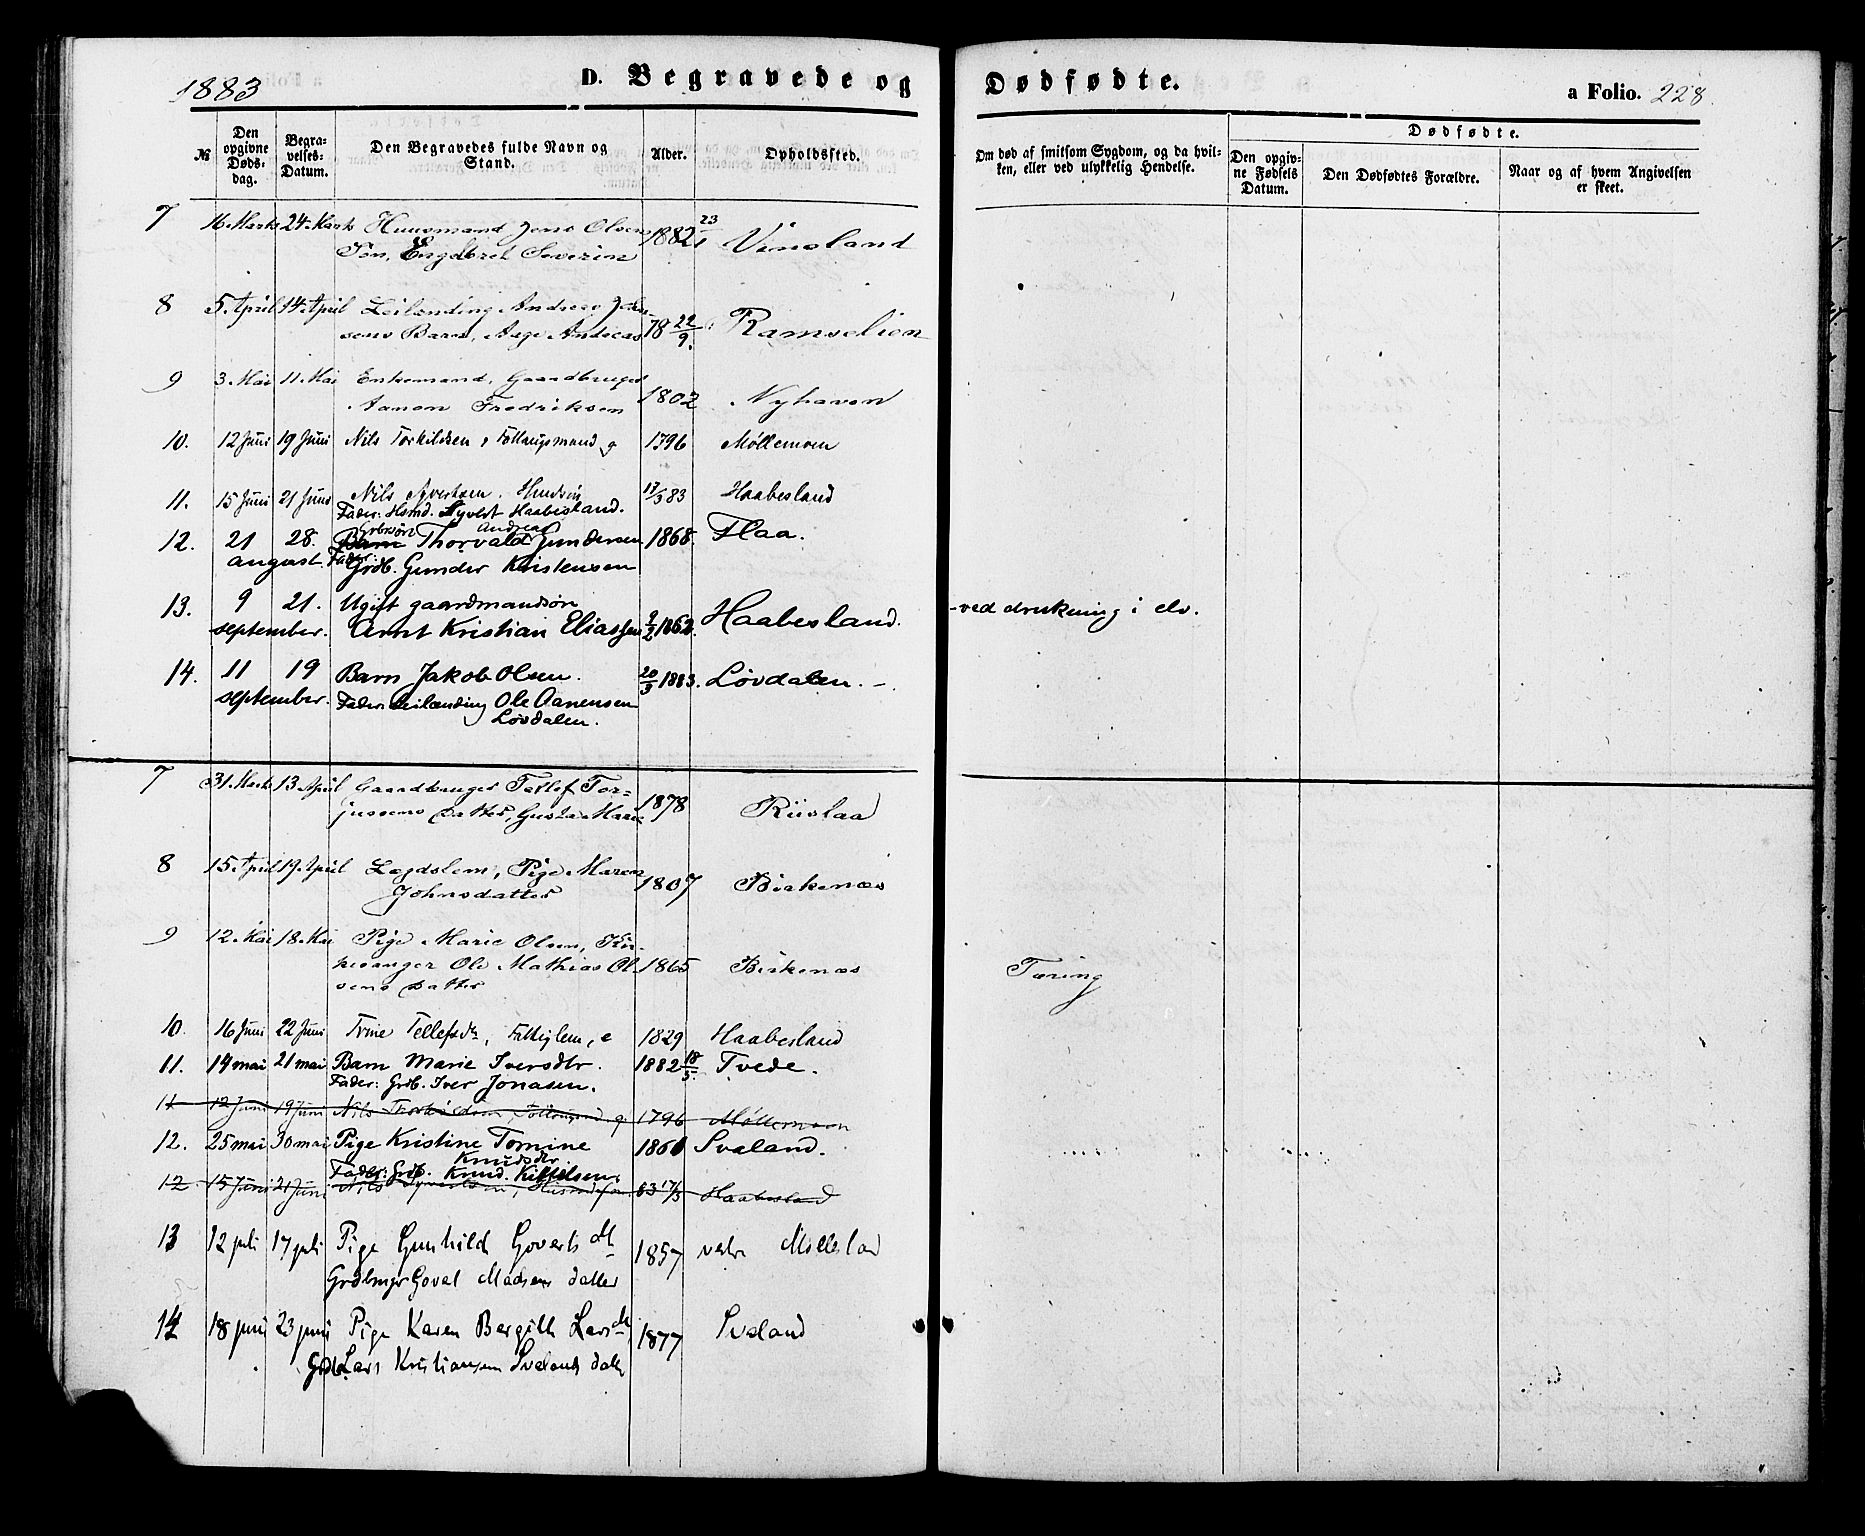 1883
D. Begravede og Dødfødte.
a Folio. 228.
№
Den opgivne Døds-dag.
Begra-velses-Datum.
Den Begravedes fulde Navn og Stand.
Alder.
Opholdssted.
Om død af smitsom Sygdom, og da hvil-ken, eller ved ulykkelig Hendelse.
Dødfødte.
Den opgiv-ne Fødsels Datum.
Den Dødfødtes Forældre.
Naar og af hvem Angivelsen er skeet.
7 16 Marts 24 Marts Huusmand Jens Olsens 1882 23/1 Vinsland
Søn, Engebret Severin
8 5 April 14 April Leilending Andreas Jen-
sens Barn, Aage Andreas 78 22/9 Ramselien
9 3. Mai 11. Mai Enkemand, Gaardbruger
Aanon Fredriksen 1802 Nyhaven
10. 12 Juni 19 Juni Nils Torkildsen, Fattigmand g 1796 Møllemoen
11. 15 Juni 21 Juni Nils Syvertsen. Husmsøn 17/3 83 Haabesland
Fader: Hsmd. Syvert Haabesland.
12. 21 28. Grbrsøn Thorvald Andreas Gundersen 1868. Flaa.
august Fader: Grdb. Gunder Kristensen
13. 9 21. Ugift gaardmandsøn
september. Arnt Kristian Eliassen 9/2 1862. Haabesland. - ved drukning i elv.
14. 11 19 Barn Jakob Olsen. 20/3 1883. Løvdalen. -.
september. Fader: Leilænding Ole Aanensen
Løvdalen.
7 31. Marts 13 April Gaardbruger Tellef Tor-
jussens Datter, Gusta Marie 1878 Riislaa
8 15 April 19 April Lægdslem, Pige Maren
Johnsdatter 1807 Birkenæs
9 12 Mai 18 Mai Pige Marie Olsen, Kir-
kesanger Ole Mathias Ol- 1865 Birkenæs Tæring
sens Datter
10. 16 Juni 22 Juni Trine Tellefsdr, Fattiglem, e 1829 Haabesland
11. 14 mai 21 mai Barn Marie Iversdtr. 1882 18/5. Tvede.
Fader: Grdb. Iver Jonasen.
11 12 Juni 19 Juni Nils Thorkildsen, Fattigmd g. 1796 Møllemoen
12. 25 mai 30 mai Pige Kristine Tomine 1861 Svaland.
Knudsdtr.
Fader: Grdb. Knud Kittelsen.
12 15 Juni 21 Juni Nils Syvertsen, Husmdsøn 83 17/3 Haabesland
13 12 juli 17 juli Pige Gunhild Goverts dtr 1857 vestre Mollesland
Grdbrugr Goval Madsens datter
14 18 juni 23 juni Pige Karen Bergith Larsdtr 1877 Svaland
Grdb. Lars Kristiansen Svalands datter